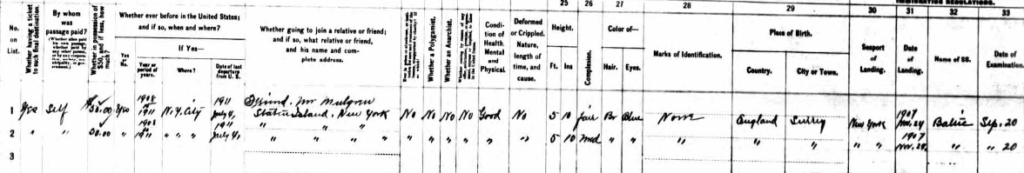 25 26 27 28 29 30 31 32 33
No. on List.
Whether having a ticket to such final destination.
By whom was passage paid?
Whether in possession of $50, and if less, how much?
Whether ever before in the United States; and if so, when and where?
Yes
If Yes—
Year or period of years.
Where?
Date of last departure from U. S.
Whether going to join a relative or friend; and if so, what relative or friend, and his name and complete address.
Whether a Polygamist.
Whether an Anarchist.
Condition of Health, Mental and Physical.
Deformed or Crippled. Nature, length of time, and cause.
Height.
Ft. Ins
Complexion.
Color of—
Hair. Eyes.
Marks of Identification.
Place of Birth.
Country. City or Town.
Seaport of Landing.
Date of Landing.
Name of SS.
Date of Examination.
1 Yes Self 50.00 Yes 1908 1911 N.Y. City 1911 July 4, Friend. Mr Mulgrew Staten Island. New York No No No No Good No 5 10 fair Br Blue None England Surrey New York 1907 Nov. 24 Baltic Sep. 20
2 " " 50.00 " 1907 1911 " " " 1911 July 4, " " " " " " " " " " 5 10 med " " " " " " " 1907 Nov. 24 " " 20
3